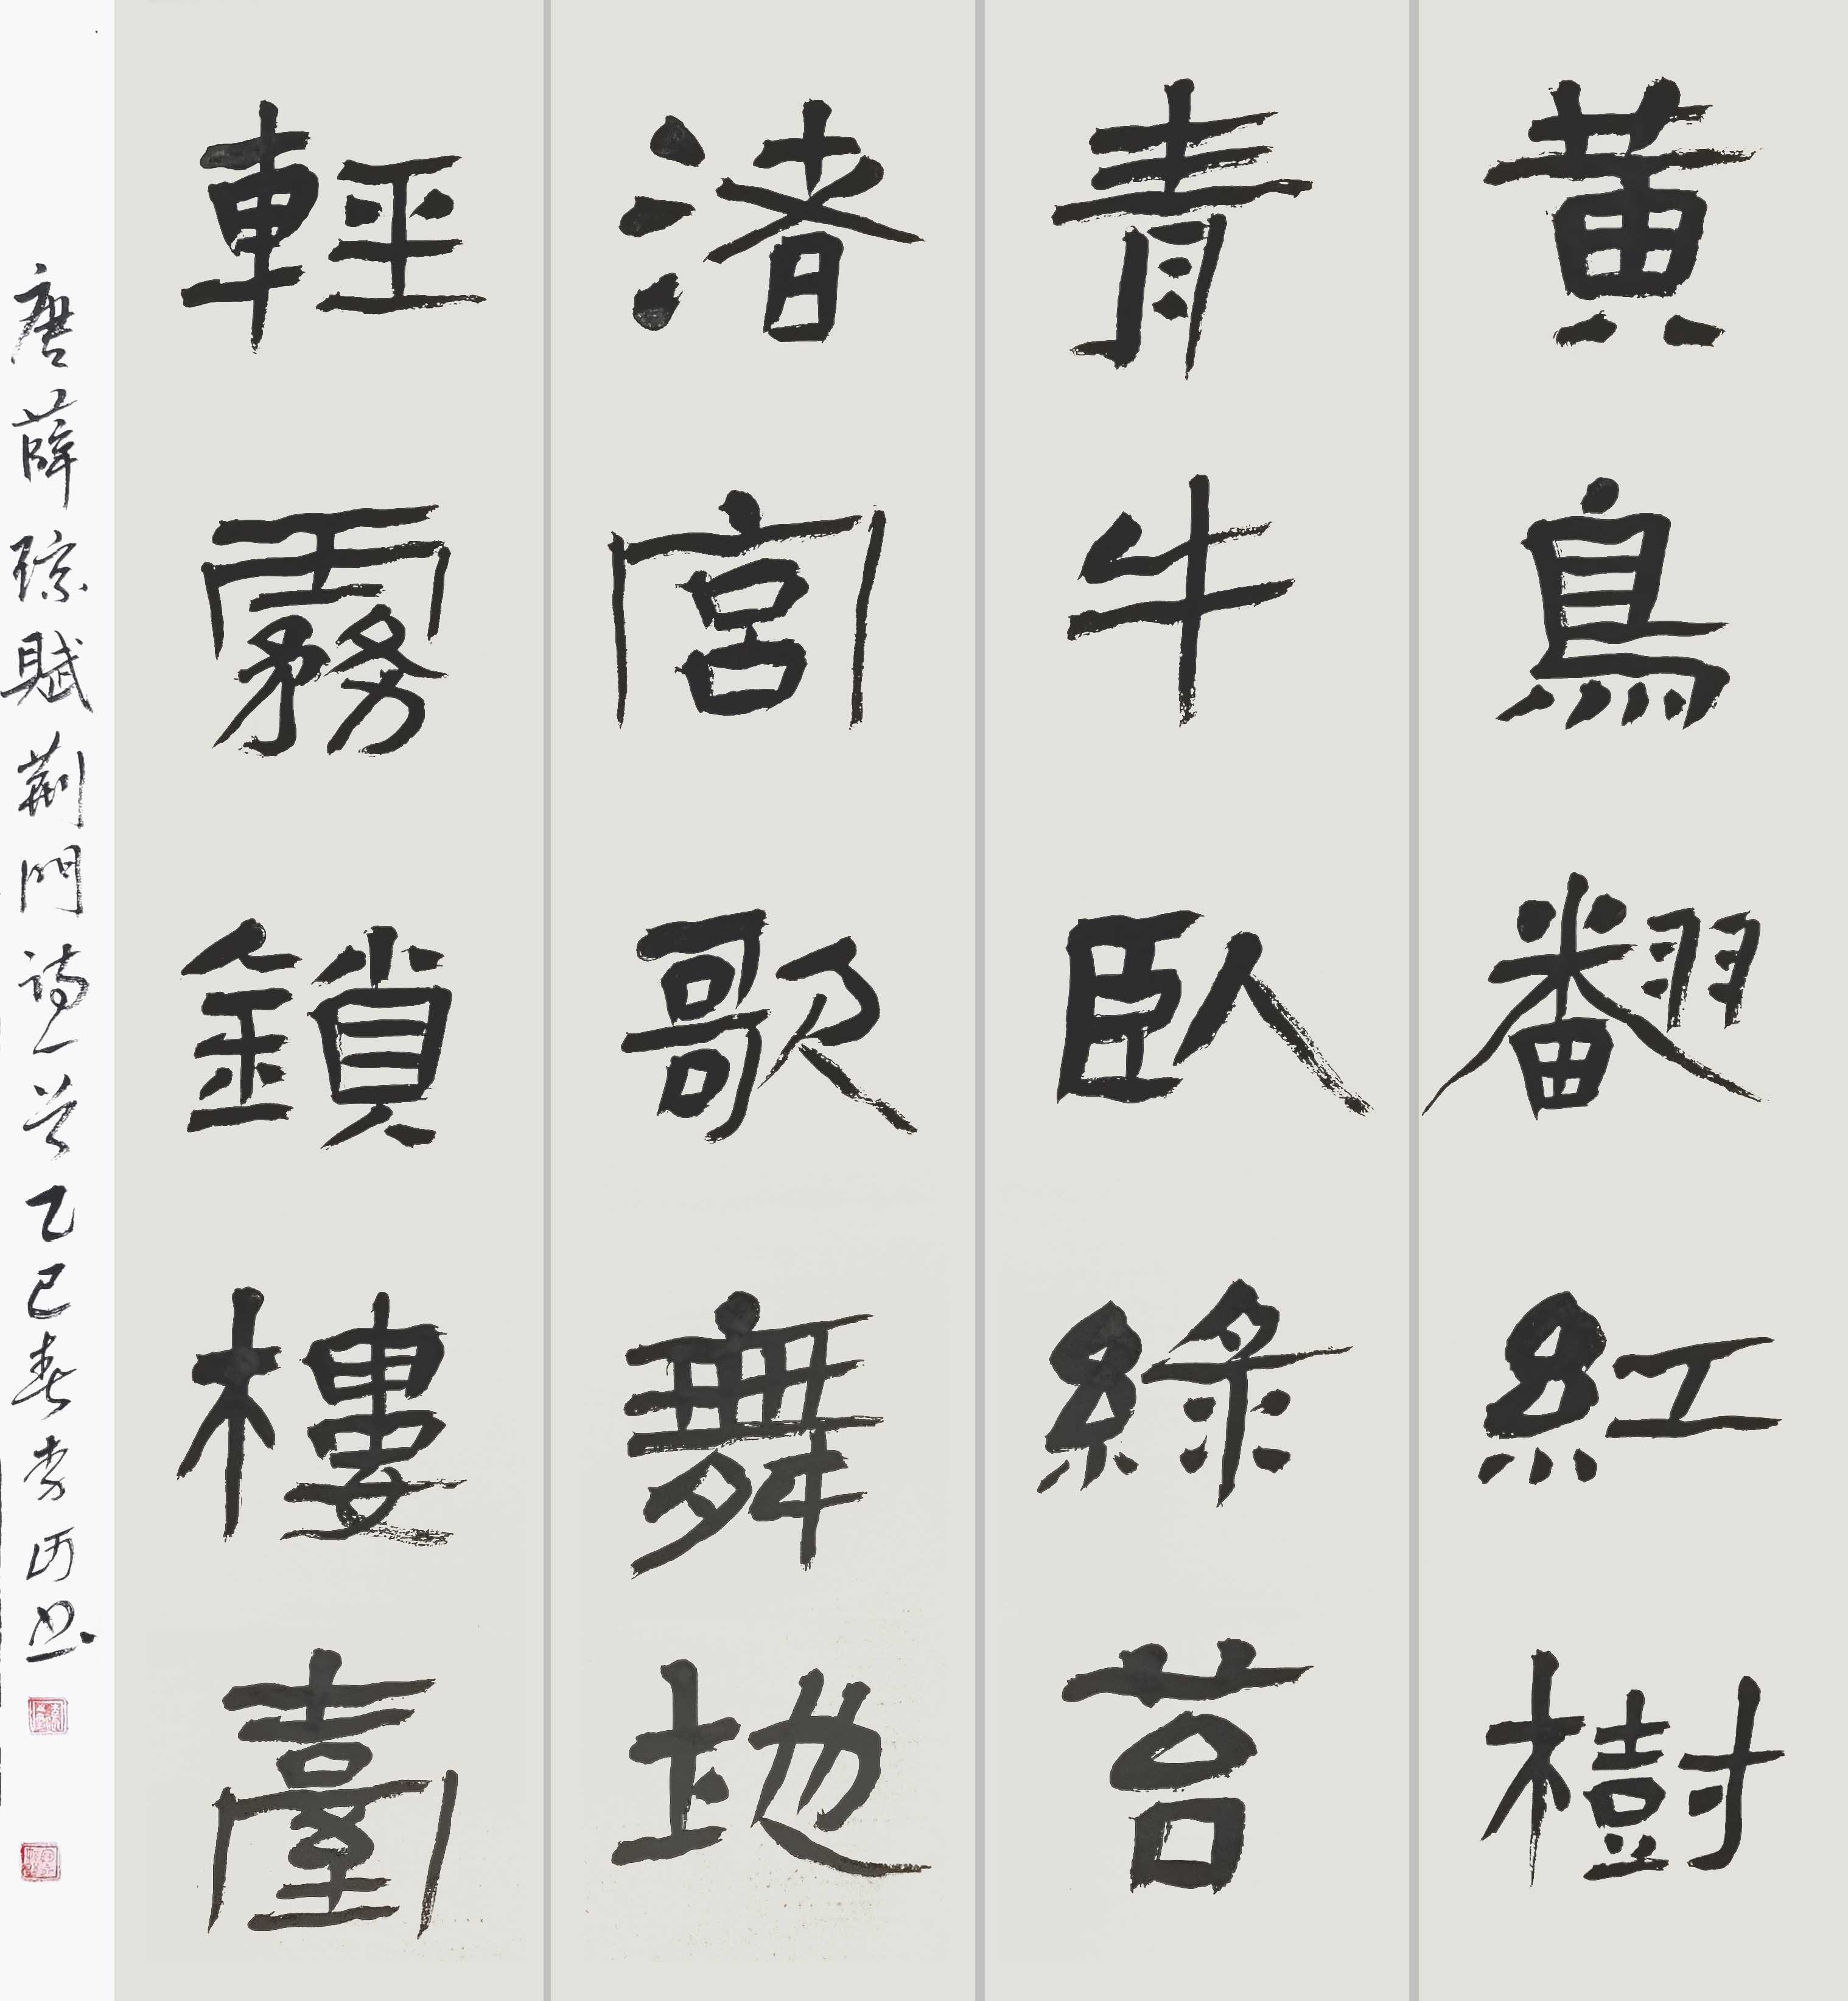 黄鳥翻紅樹
青牛臥綠苔
渚宮歌舞地
輕霧鎖樓臺
唐薛琼賦荊門詩一首乙巳春李沔书